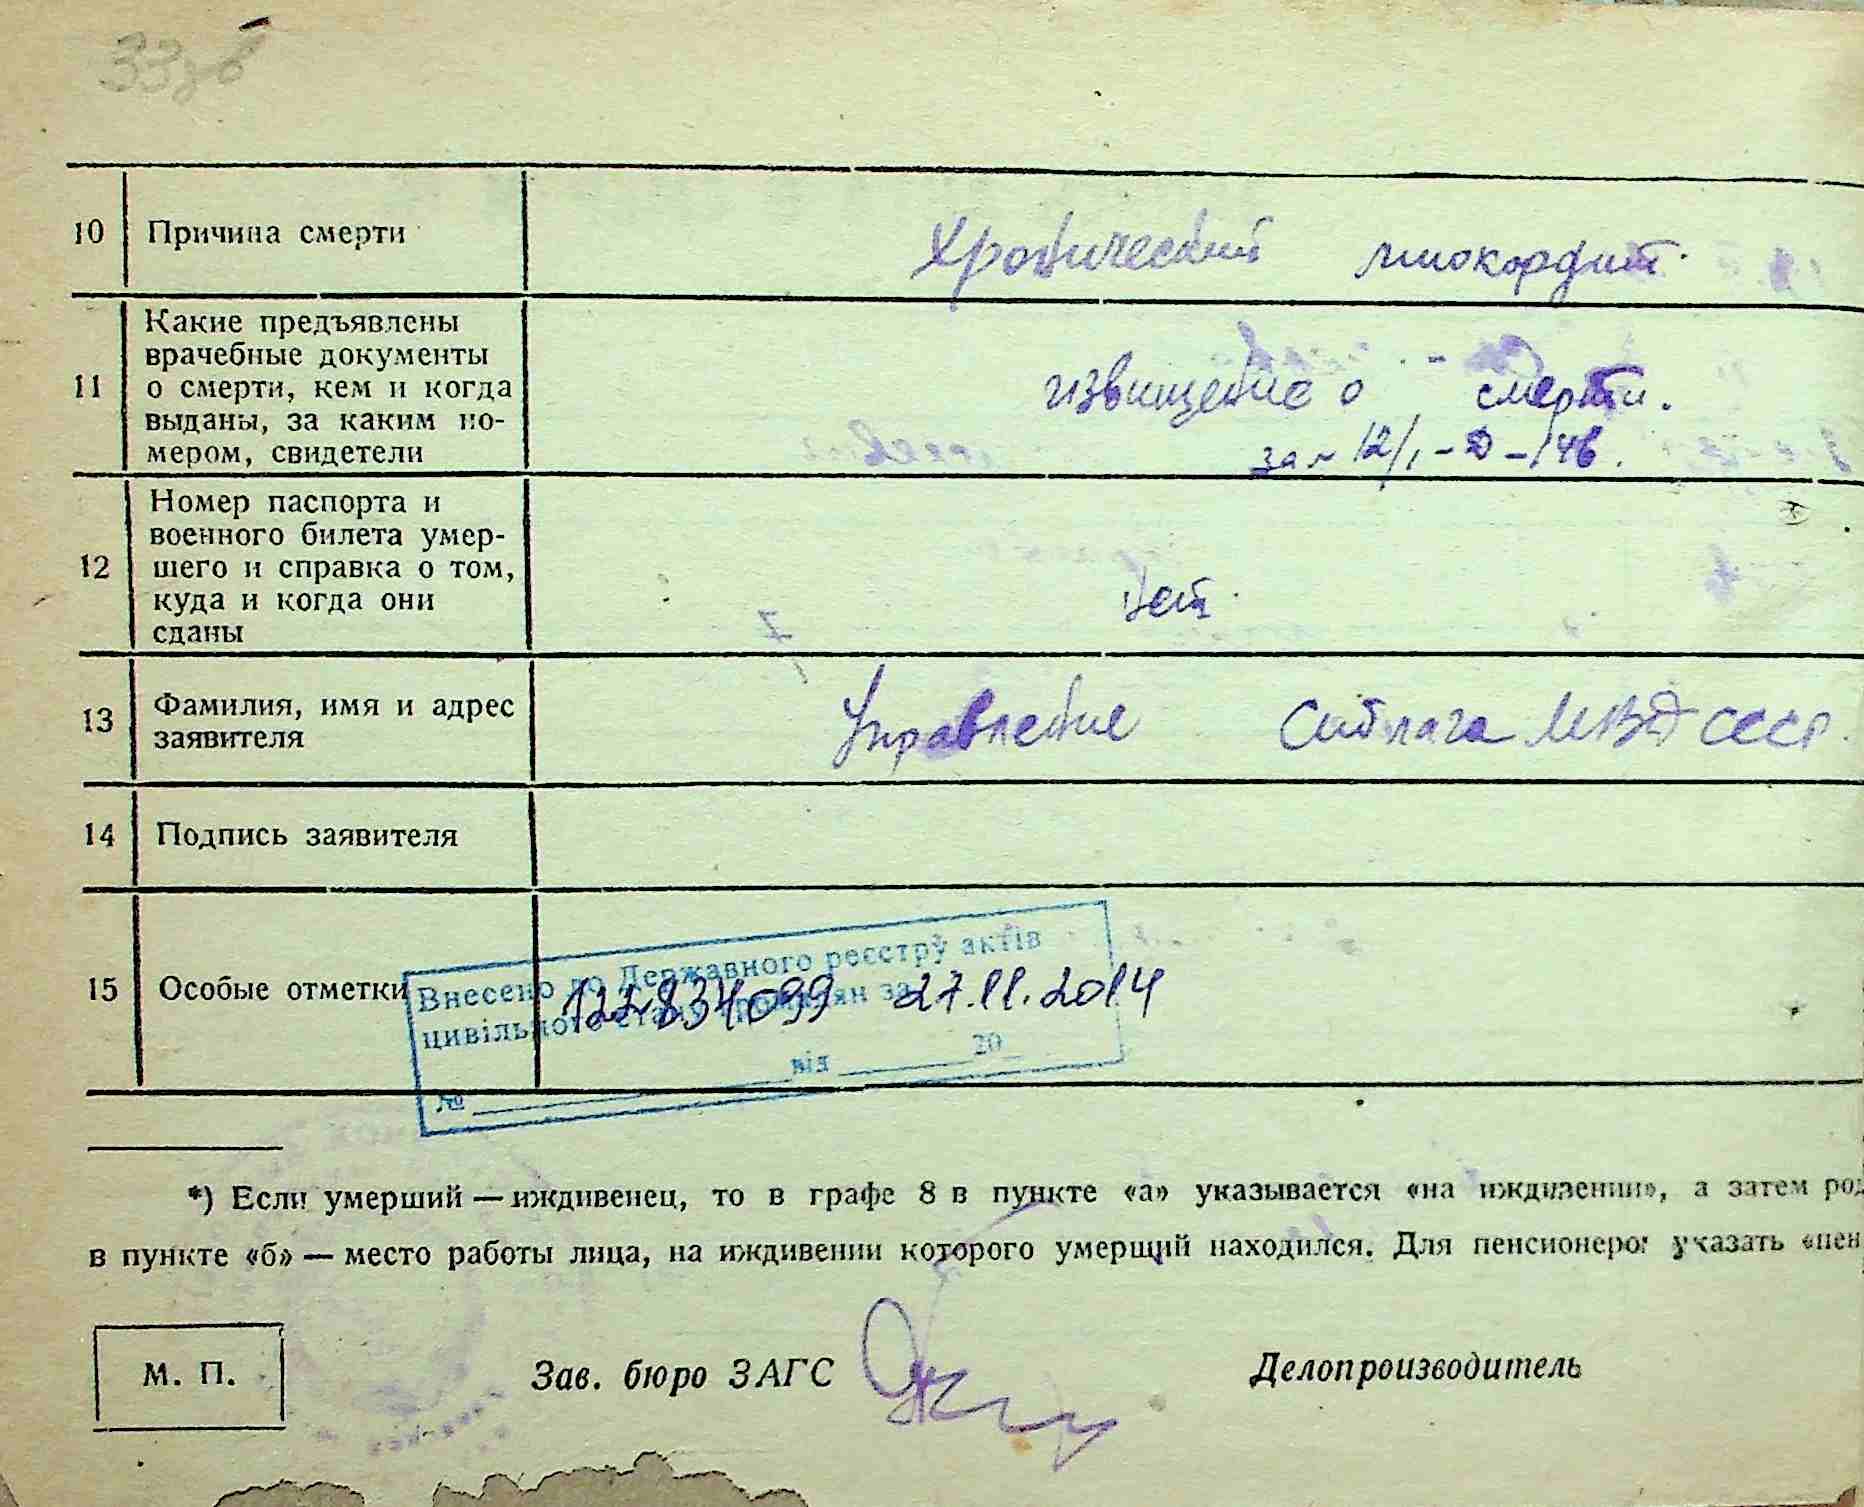 10 Причина смерти Хронический миокордит.
11 Какие предъявлены
врачебные документы
о смерти, кем и когда
выданы, за каким но-
мером, свидетели
извищение о смерти.
за № 12/1-Д-146.
12 Номер паспорта и
военного билета умер-
шего и справка о том,
куда и когда они
сданы
нет.
13 Фамилия, имя и адрес
заявителя
Управление Сиблага МВД СССР.
14 Подпись заявителя
15 Особые отметки
Внесено до Державного реєстру актів
цивільного стану громадян за
122834099 27.11.2014
№ від 20
*) Если умерший — иждивенец, то в графе 8 в пункте «а» указывается «на иждивении», а затем род
в пункте «б» — место работы лица, на иждивении которого умерщий находился. Для пенсионеров указать «пен
М. П. Зав. бюро ЗАГС Делопроизводитель